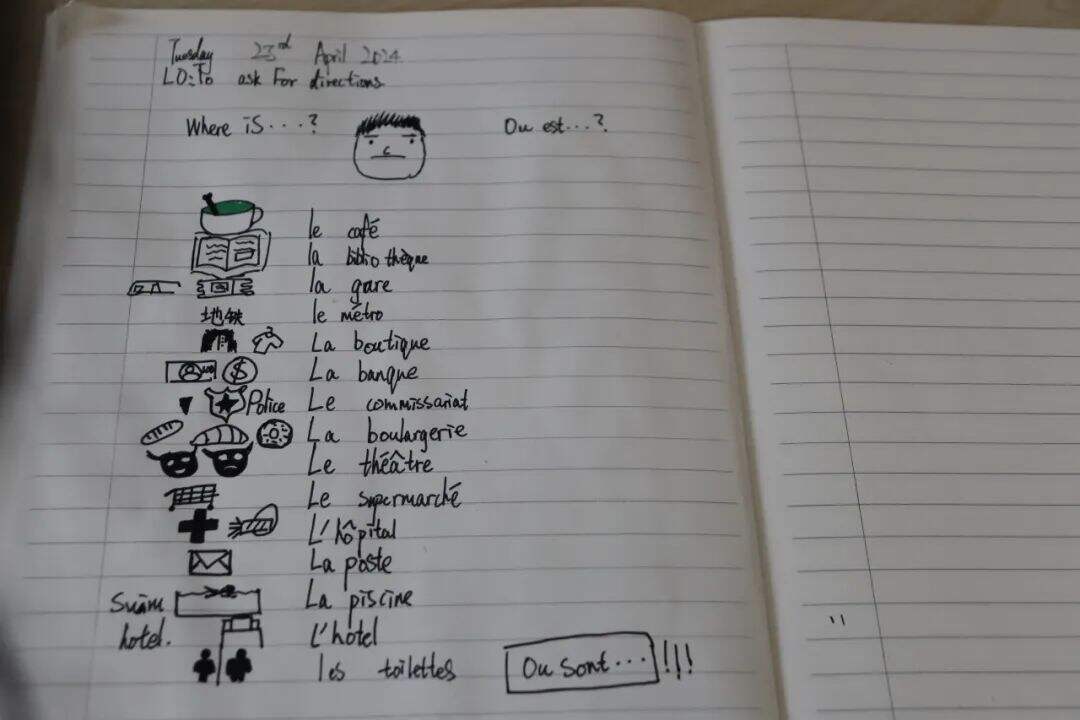 Tuesday 23rd April 2024
LO:To ask For directions
Where is....? Ou est...?
le café
la bibliothèque
la gare
地铁 le métro
La boutique
$ La banque
Police Le commissariat
La boulangerie
Le théâtre
Le supermarché
L'hôpital
La poste
Swim La piscine
hotel. L'hôtel
les toilettes Ou sont...!!!